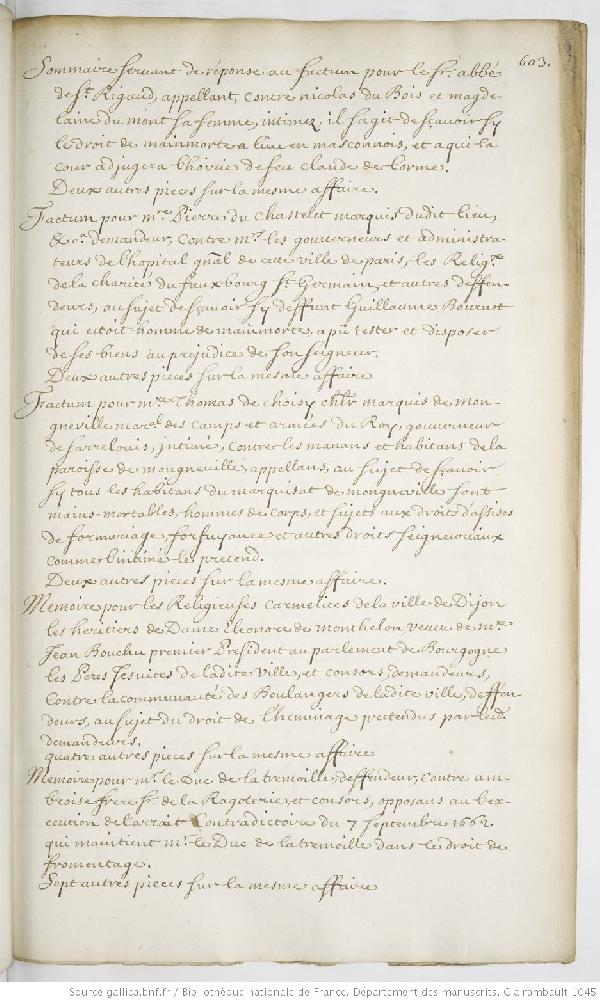 603.
Sommaire servant de réponse au factum pour le sr. abbé
de st. Rigaud, appellant, contre nicolas du Bois et magde-
laine du mont sa femme, intimez, il s'agit de sçavoir sy
le droit de mainmorte a lieu en masconnois, et a qui la
cour adjugera l'hoirie de feu claude de lorme.
Deux autres pieces sur la mesme affaire.
Factum pour mre. Pierre du chastelet marquis dudit lieu,
&ca. demandeur, contre mrs. les gouverneurs et administra-
teurs de l'hopital gnãl de cette ville de paris, les Religx
de la charité du faux bourg st. Germain, et autres deffen-
deurs, au sujet de sçavoir sy deffunt Guillaume Bournot
qui etoit homme de mainmorte, a pû tester et disposer
de ses biens au prejudice de son seigneur.
Deux autres pieces sur la mesme affaire
Factum pour mre. Thomas de choisy chlr marquis de mon-
gneville maral. des camps et armées du Roy, gouverneur
de sarrelouis, intimé, contre les manans et habitans de la
paroisse de mongneville, appellans, au sujet de sçavoir
sy tous les habitans du marquisat de mongneville sont
mains-mortables, hommes de corps, et sujets aux droits d'assises
de formariage, forfuyance et autres droits seigneuriaux
comme l'intimé le pretend.
Deux autres pieces sur la mesme affaire.
Memoire pour les Religieuses carmelites de la ville de Dijon
les heritiers de Dame Eleonore de monthelon veuve de mre
Jean Bouchu premier President au parlement de Bourgogne
les Peres Jesuites de ladite ville, et consors, demandeurs,
contre la communauté des Boulangers de ladite ville, deffen-
deurs, au sujet du droit de l'heminage pretendus par lesd.
demandeurs.
quatre autres pieces sur la mesme affaire
Memoire pour mr. le Duc de la tremoille, deffendeur, contre am-
broise frere sr. de la Ragoterie, et consors, opposans a l'exe-
cution de l'arrèt contradictoire du 7 septembre 1662.
qui maintient mr. le Duc de la tremoille dans le droit de
fromentage.
Sept autres pieces sur la mesme affaire
Source gallica.bnf.fr / Bibliothèque nationale de France. Département des manuscrits. Clairambault 1045